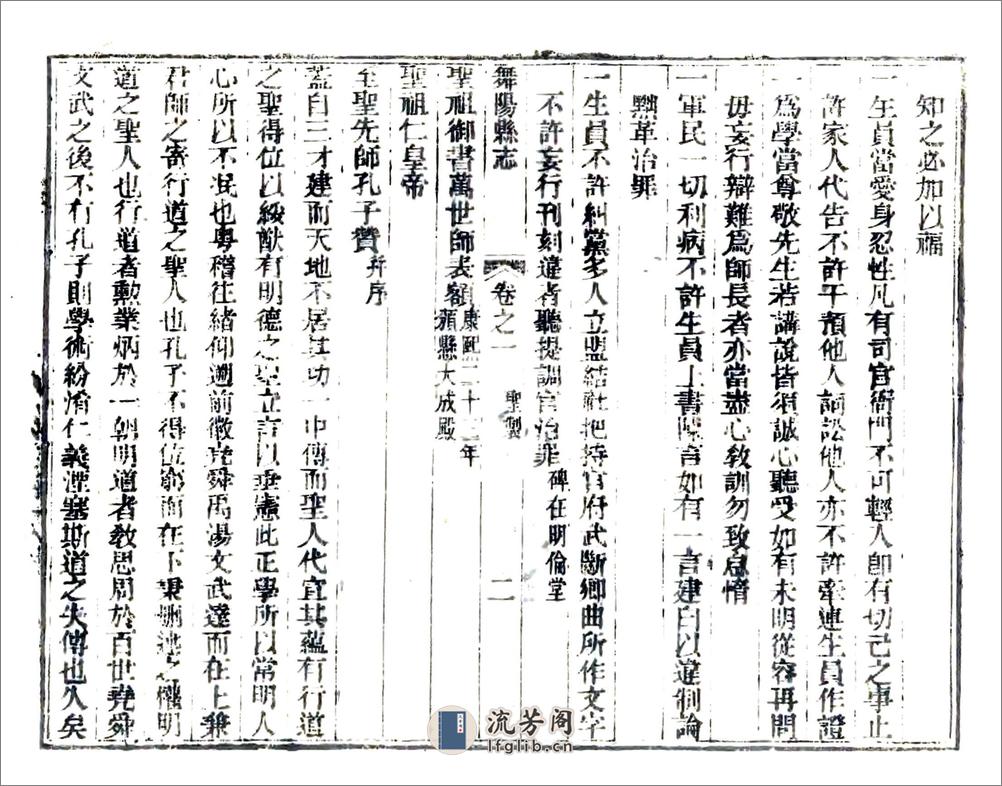 知之必加以福
一生員當愛身忍性凡有司官衙門不可輕入卽有切己之事止
許家人代告不許干預他人詞訟他人亦不許牽連生員作證
一爲學當尊敬先生若講說皆須誠心聽受如有未明從容再問
毋妄行辯難爲師長者亦當盡心教訓勿致怠惰
一軍民一切利病不許生員上書陳言如有一言建白以違制論
黜革治罪
一生員不許糾黨多人立盟結社把持官府武斷鄉曲所作文字
不許妄行刊刻違者聽提調官治罪 碑在明倫堂
舞陽縣志 卷之一 聖製 二
聖祖御書萬世師表額 康熙二十三年頒懸大成殿
聖祖仁皇帝
至聖先師孔子贊 并序
蓋自三才建而天地不居其功一中傳而聖人代宣其蘊有行道
之聖得位以綏猷有明德之聖立言以垂憲此正學所以常明人
心所以不泯也粤稽往緒仰遡前徽堯舜禹湯文武達而在上兼
君師之寄行道之聖人也孔子不得位窮而在下秉刪述之權明
道之聖人也行道者勲業炳於一朝明道者教思周於百世堯舜
文武之後不有孔子則學術紛淆仁義湮塞斯道之失傳也久矣
流芳阁
lfglib.cn